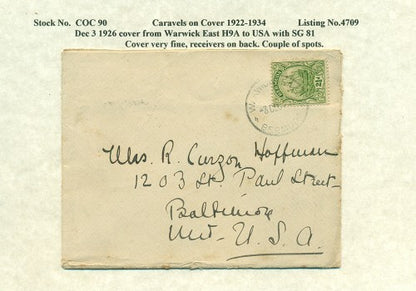 Stock No. COC 90 Caravels on Cover 1922-1934 Listing No.4709
Dec 3 1926 cover from Warwick East H9A to USA with SG 81
Cover very fine, receivers on back. Couple of spots.
Mrs. R. Curzon Hoffman
1203 St. Paul Street
Baltimore
Md. U. S. A.